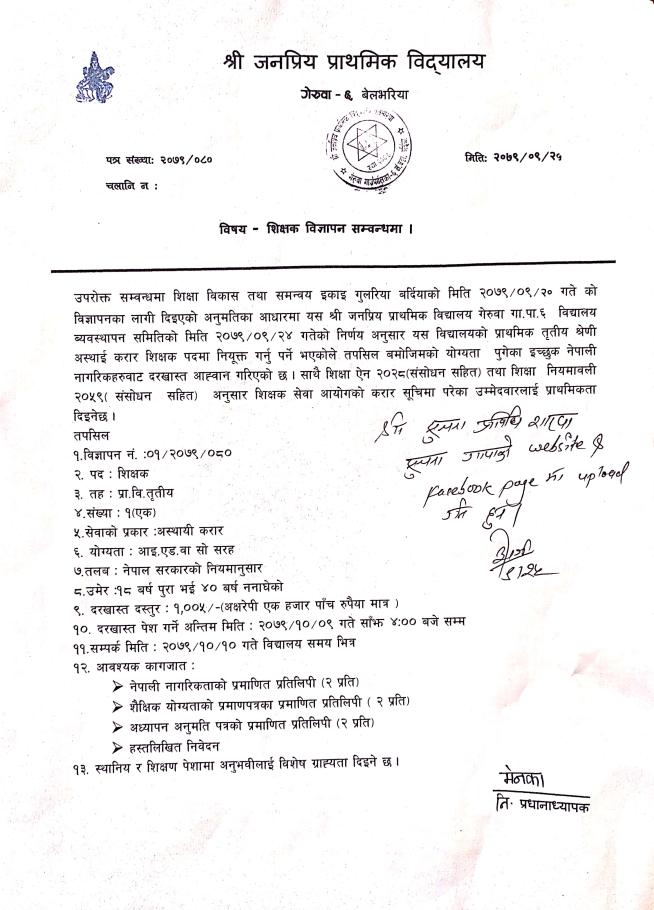 श्री जनप्रिय प्राथमिक विद्यालय
गेरुवा - ६ बेलभरिया
पत्र संख्या: २०७९/०८०
मिति: २०७९/०९/२५
चलानि न :
विषय - शिक्षक विज्ञापन सम्वन्धमा ।
उपरोक्त सम्वन्धमा शिक्षा विकास तथा समन्वय इकाइ गुलरिया बर्दियाको मिति २०७९/०९/२० गते को
विज्ञापनका लागी दिइएको अनुमतिका आधारमा यस श्री जनप्रिय प्राथमिक विद्यालय गेरुवा गा.पा.६ विद्यालय
ब्यवस्थापन समितिको मिति २०७९/०९/२४ गतेको निर्णय अनुसार यस विद्यालयको प्राथमिक तृतीय श्रेणी
अस्थाई करार शिक्षक पदमा नियूक्त गर्नु पर्ने भएकोले तपसिल बमोजिमको योग्यता पुगेका इच्छुक नेपाली
नागरिकहरुवाट दरखास्त आह्वान गरिएको छ । साथै शिक्षा ऐन २०२८(संसोधन सहित) तथा शिक्षा नियमावली
२०५९( संसोधन सहित) अनुसार शिक्षक सेवा आयोगको करार सूचिमा परेका उम्मेदवारलाई प्राथमिकता
दिइनेछ ।
तपसिल
१.विज्ञापन नं. :०१/२०७९/०८०
२. पद : शिक्षक
३. तह : प्रा.वि.तृतीय
४.संख्या : १(एक)
५.सेवाको प्रकार :अस्थायी करार
६. योग्यता : आइ.एड.वा सो सरह
७.तलब : नेपाल सरकारको नियमानुसार
८.उमेर :१८ बर्ष पुरा भई ४० बर्ष ननाघेको
९. दरखास्त दस्तुर : १,००५/-(अक्षरेपी एक हजार पाँच रुपैया मात्र )
१०. दरखास्त पेश गर्ने अन्तिम मिति : २०७९/१०/०९ गते साँझ ४:०० बजे सम्म
११.सम्पर्क मिति : २०७९/१०/१० गते विद्यालय समय भित्र
१२. आवश्यक कागजात :
➤ नेपाली नागरिकताको प्रमाणित प्रतिलिपी (२ प्रति)
➤ शैक्षिक योग्यताको प्रमाणपत्रका प्रमाणित प्रतिलिपी ( २ प्रति)
➤ अध्यापन अनुमति पत्रको प्रमाणित प्रतिलिपी (२ प्रति)
➤ हस्तलिखित निवेदन
१३. स्थानिय र शिक्षण पेशामा अनुभवीलाई विशेष ग्राह्यता दिइने छ ।
श्री सूचना प्रविधि शाखा
सूचना गापाको website &
facebook page मा upload
हुन ।
मेनका
नि. प्रधानाध्यापक